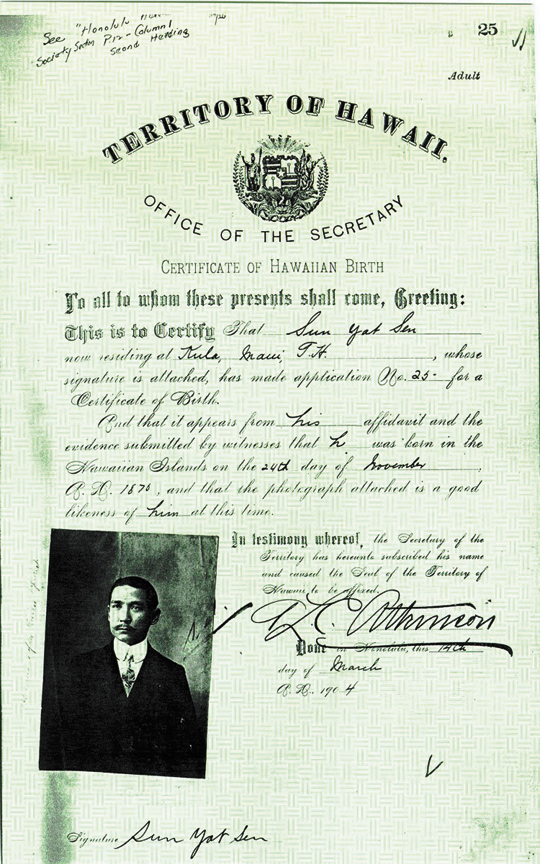 See "Honolulu
Society Section P12 - Column 1
Second Heading
25
Adult
TERRITORY OF HAWAII.
OFFICE OF THE SECRETARY
CERTIFICATE OF HAWAIIAN BIRTH
To all to whom these presents shall come, Greeting:
This is to Certify That Sun Yat Sen
now residing at Kula, Maui T.H. , whose
signature is attached, has made application No. 25- for a
Certificate of Birth.
And that it appears from his affidavit and the
evidence submitted by witnesses that he was born in the
Hawaiian Islands on the 24th day of November ,
A.D. 1870, and that the photograph attached is a good
likeness of him at this time.
In testimony whereof, the Secretary of the
Territory has hereunto subscribed his name
and caused the Seal of the Territory of
Hawaii to be affixed.
A L C Atkinson
Done in Honolulu, this 14th
day of March
A.D. 1904
Signature Sun Yat Sen